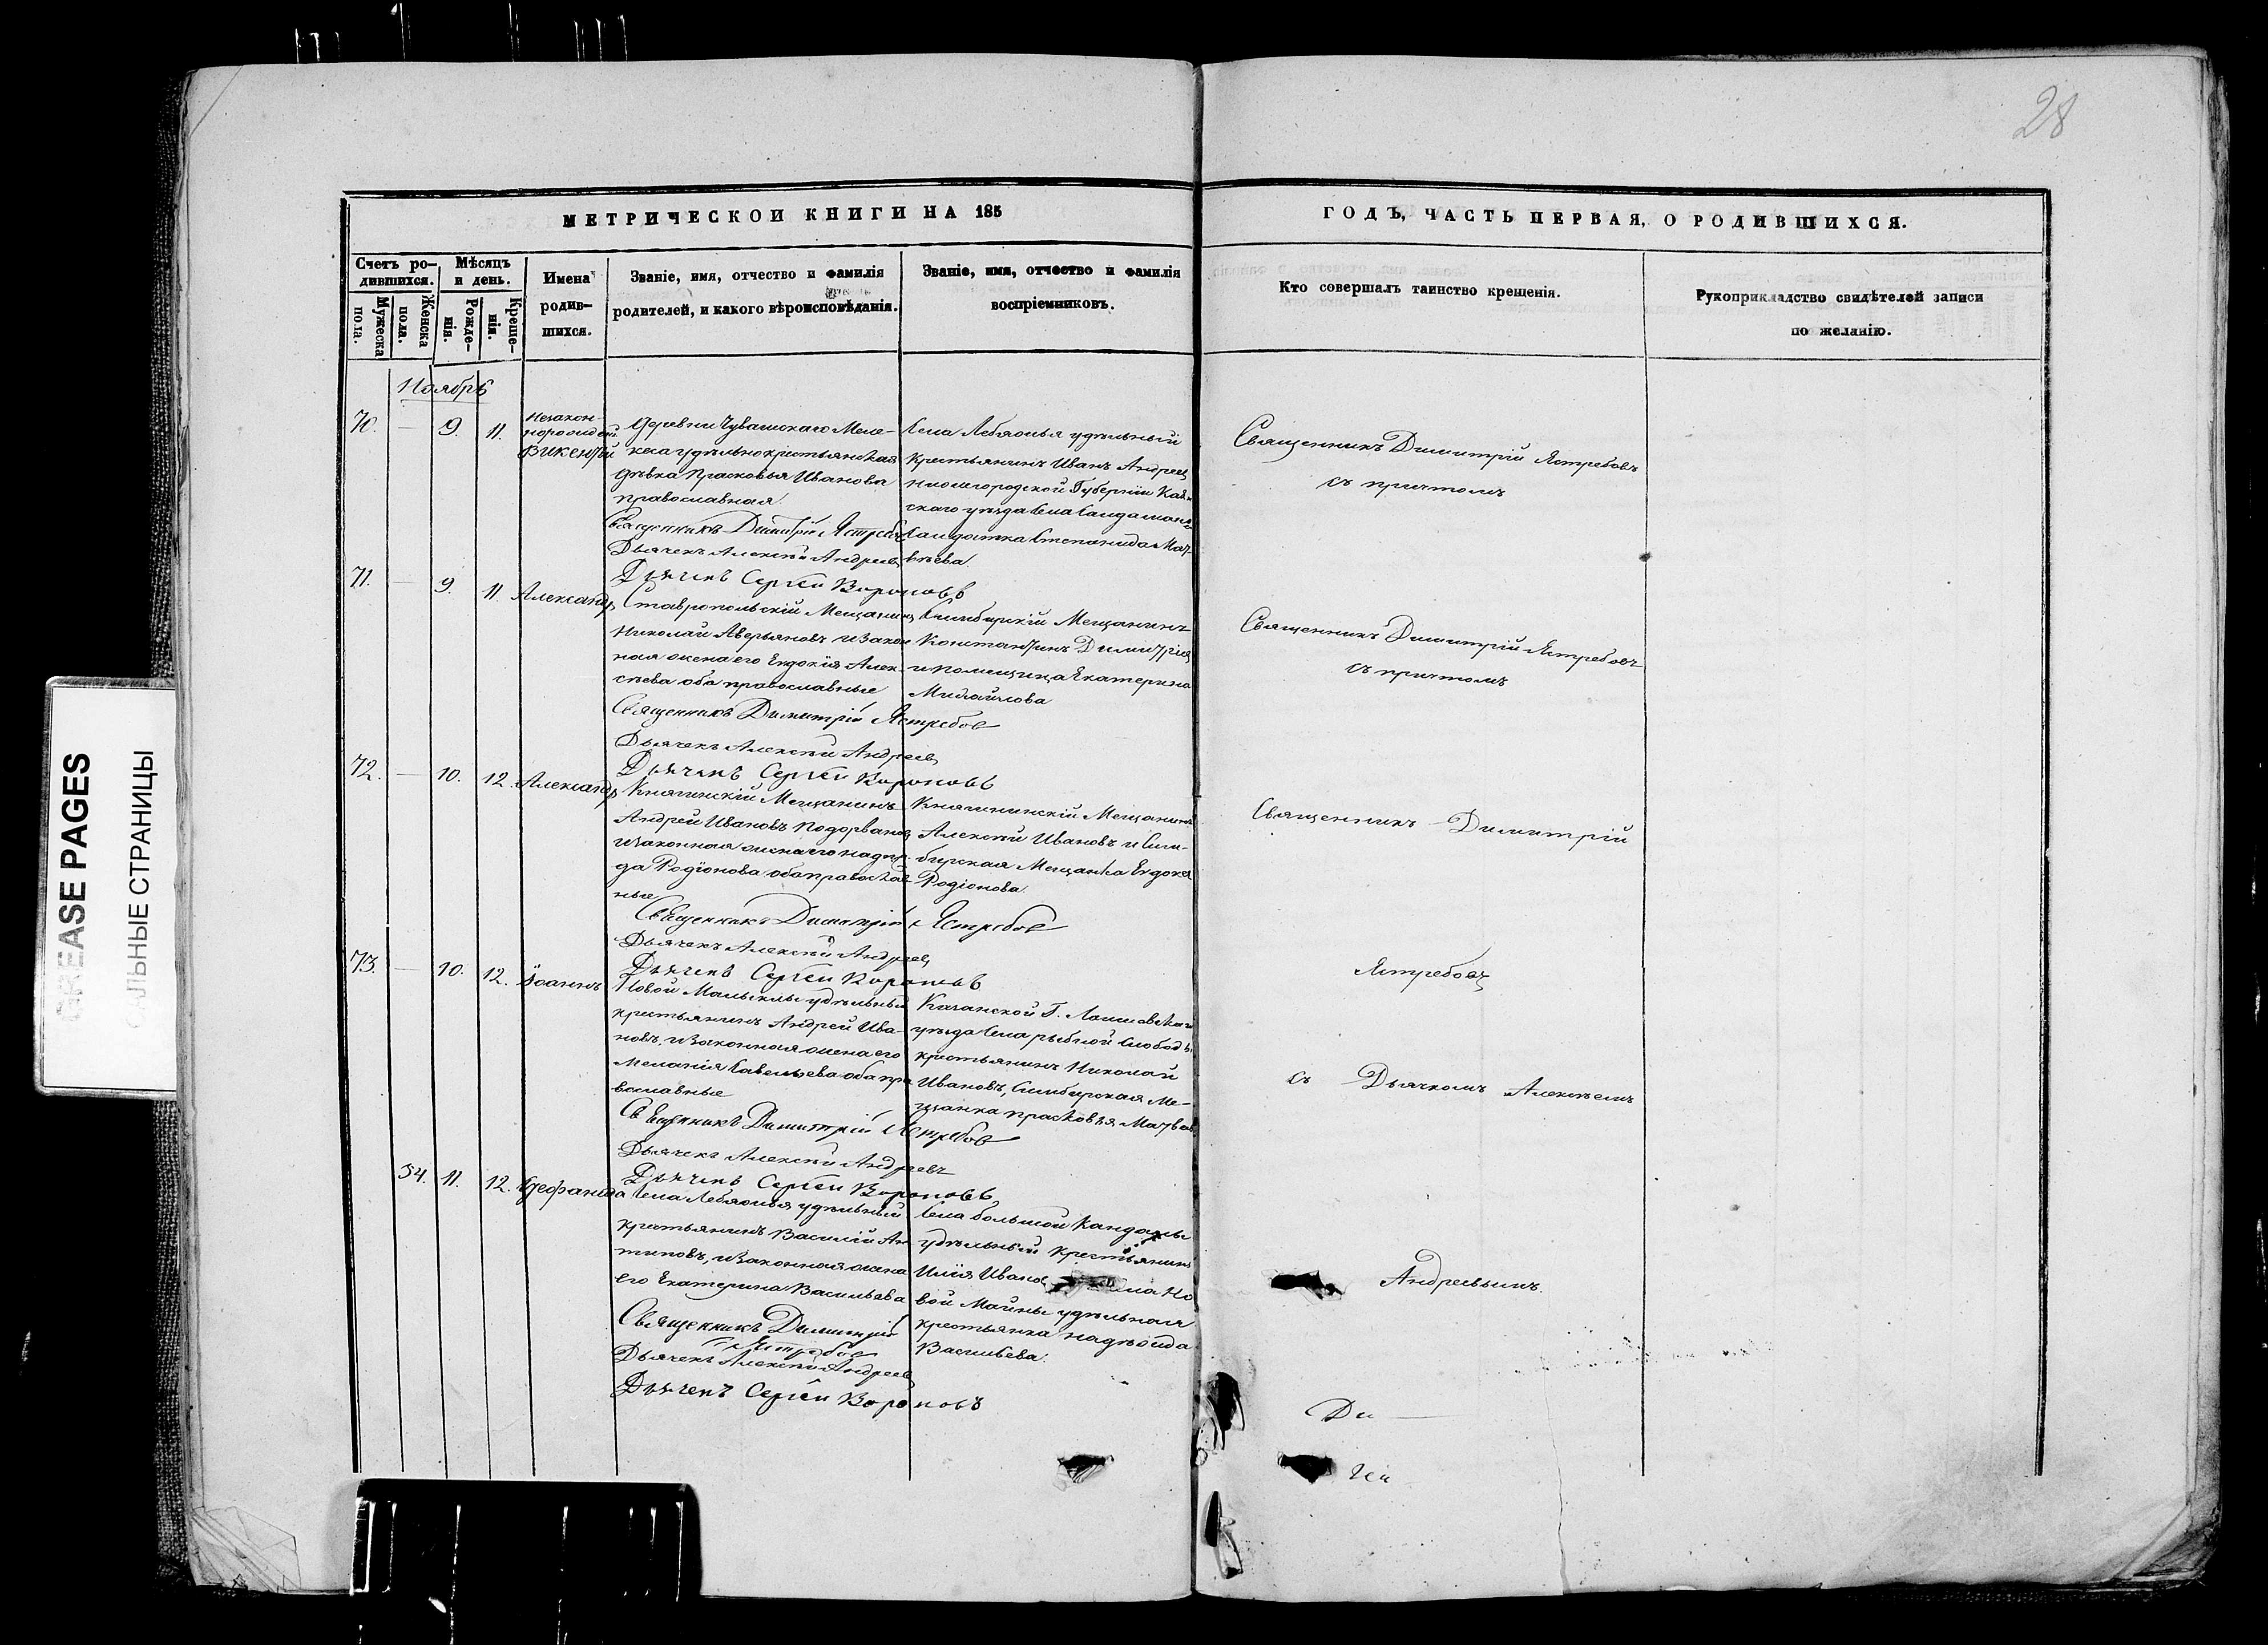 28
МЕТРИЧЕСКОЙ КНИГИ НА 185
ГОДЪ, ЧАСТЬ ПЕРВАЯ, О РОДИВШИХСЯ.
Счетъ ро-
дившихся.
Мужеска
пола.
Женска
пола.
Мѣсяцъ
и день.
Рожде-
нія.
Креще-
нія.
Имена
родив-
шихся.
Званіе, имя, отчество и фамилія
родителей, и какого вѣроисповѣданія.
Званіе, имя, отчество и фамилія
воспріемниковъ.
Кто совершалъ таинство крещенія.
Рукоприкладство свидѣтелей записи
по желанію.
Ноябрь
70. — 9. 11.
Незакон-
норожден
Викентій
Деревни Чувашскаго Меле-
кеса удѣльнокрестьянская
дѣвка Прасковья Иванова
православная
Священникъ Димитрій Ястребовъ
Дьячекъ Алексѣй Андреевъ
Дьячекъ Сергѣй Вороновъ
Села Лебяжья удѣльный
крестьянинъ Иванъ Андреевъ
Нижегородской Губерніи
скаго уѣзда села
солдатка Степанида Мат-
вѣева.
Священникъ Димитрій Ястребовъ
съ причтомъ
71. — 9. 11 Александръ
Ставропольскій Мещанинъ
Николай Аверьяновъ и закон
ная жена его Евдокія Алек-
сѣева оба православные
Священникъ Димитрій Ястребовъ
Дьячекъ Алексѣй Андреевъ
Дьячекъ Сергѣй Вороновъ
Симбирскій Мещанинъ
Константинъ Димитріевъ
и помещица Екатерина
Михайлова
Священникъ Димитрій Ястребовъ
съ причтомъ
72. — 10. 12. Александръ
Княгинскій Мещанинъ
Андрей Ивановъ Подорвановъ
и законная жена его Надеж
да Родіонова оба православ
ные
Священникъ Димитрій Ястребовъ
Дьячекъ Алексѣй Андреевъ
Дьячекъ Сергѣй Вороновъ
Княгининскій Мещанинъ
Алексѣй Ивановъ и Сим-
бирская Мещанка Евдокія
Родіонова.
Священникъ Димитрій
73. — 10. 12. Іоаннъ
Новой Малыклы удѣльный
крестьянинъ Андрей Ива-
новъ, и законная жена его
Меланія Савельева оба пра
вославные
Священникъ Димитрій Ястребовъ
Дьячекъ Алексѣй Андреевъ
Дьячекъ Сергѣй Вороновъ
Казанской Г. Лаишевскаго
уѣзда села рыбной слободы
крестьянинъ Николай
Ивановъ, Симбирская Ме-
щанка Прасковья
Ястребовъ
съ Дьячкомъ Алексѣемъ
54. 11. 12. Стефанида
Села Лебяжья удѣльный
крестьянинъ Василій Ан
типовъ, и законная жена
его Екатерина Васильева
Священникъ Димитрій
Ястребовъ
Дьячекъ Алексѣй Андреевъ
Дьячекъ Сергѣй Вороновъ
Села большой Кандалы
удѣльный крестьянинъ
Илія Ивановъ села Но
вой Майны удѣльная
крестьянка Надѣжда
Васильева.
Андреевымъ.
Ди —
GREASE PAGES
СЛЬНЫЕ СТРАНИЦЫ